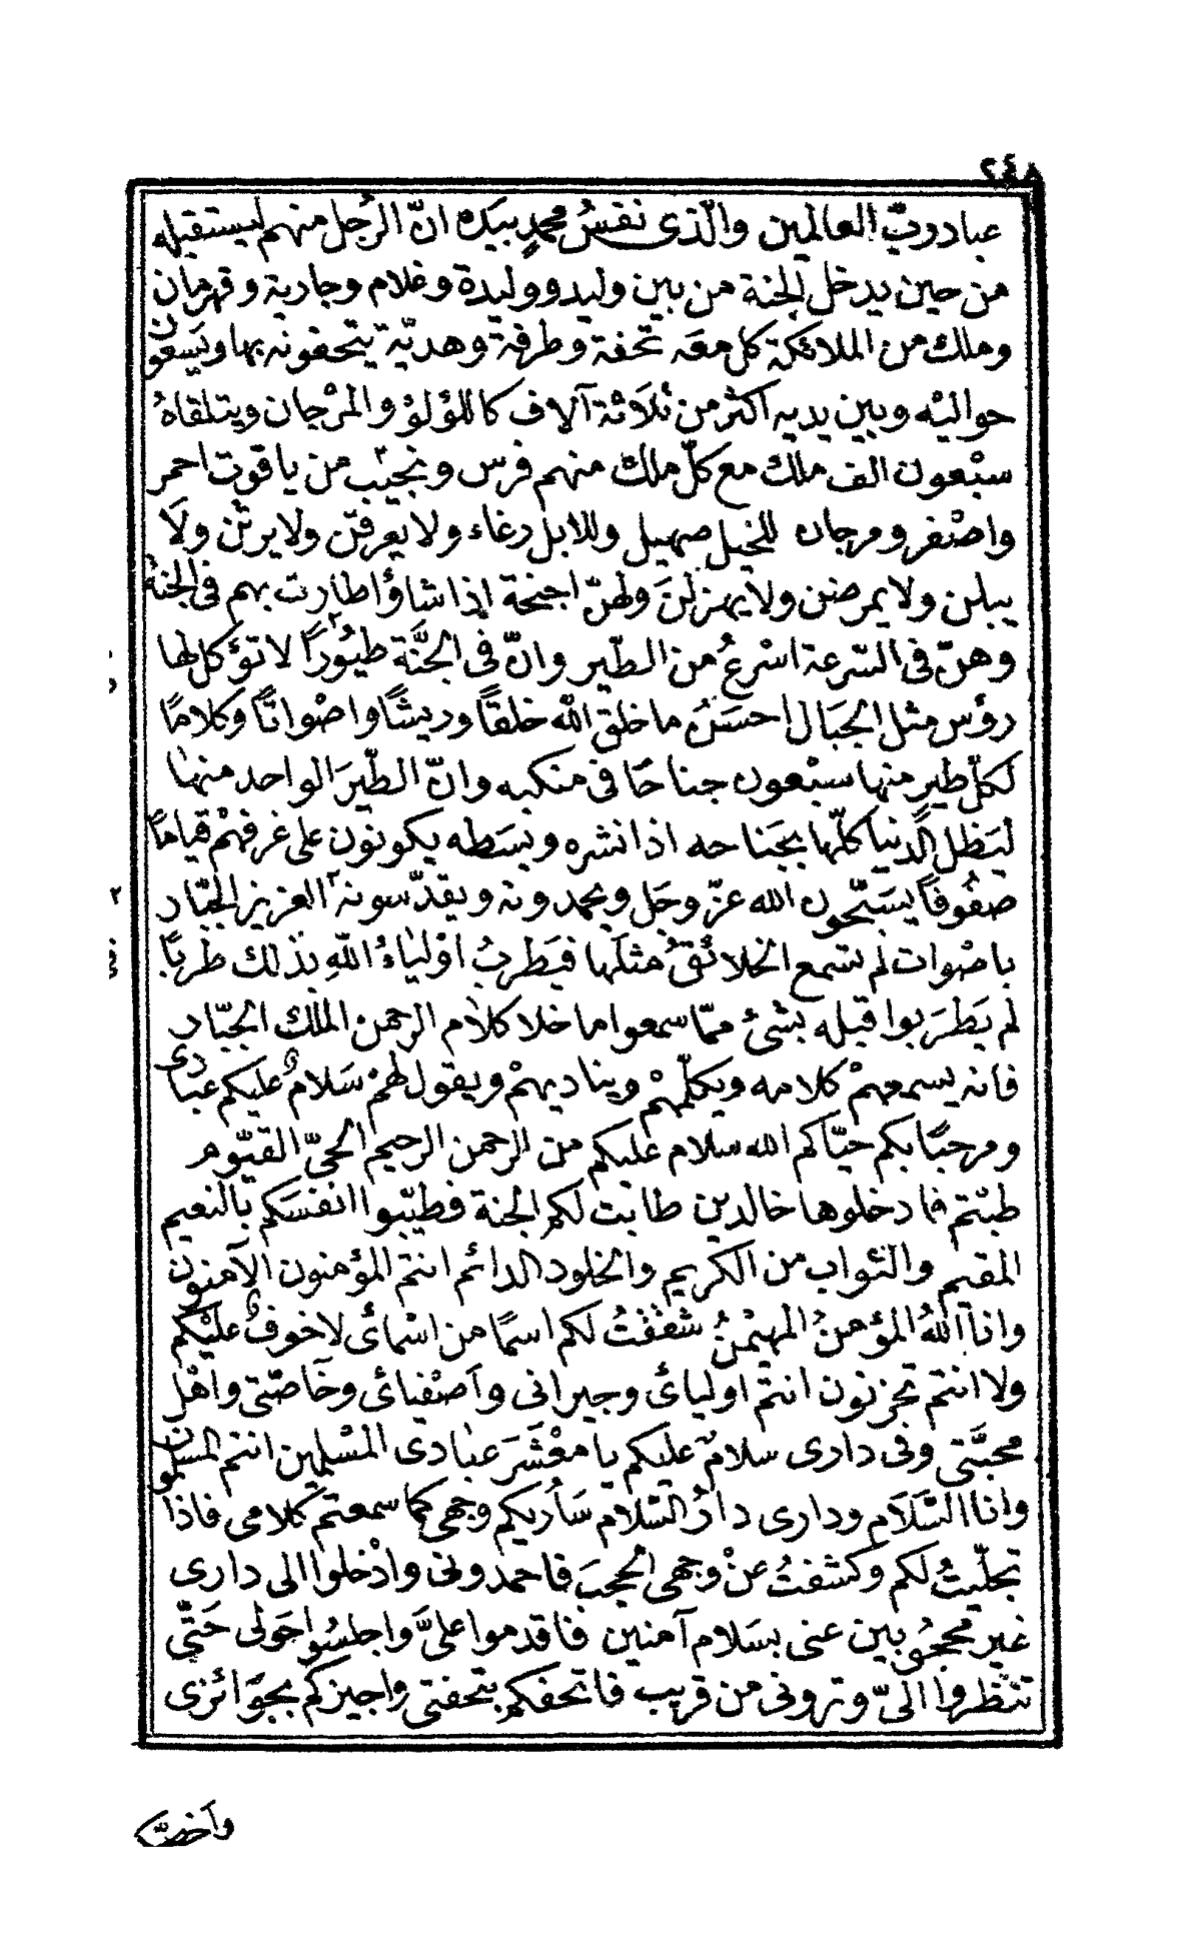 ٢٤٨
عباد ربّ العالمين والّذى نفسُ محمدٍ بيَده انّ الرّجُل منهم ليستقبله
من حين يدخل الجنة من بين وليد ووليدة وغلام وجارية وقهرمان
وملك من الملائكة كل معَه تحفة وطرفة وهديّة يتحفونه بها ويَسعون
حواليْه وبين يديه اكثر من ثلاَثة آلاف كاللؤلؤ والمرْجان ويتلقاهُ
سبْعون الف ملك مع كلّ ملك منهم فرس ونجيْب من ياقوت احمر
واصْفر ومرجان للخيل صهيل وللابل رغاء ولا يعرقنّ ولا يرثْن ولاَ
يبلن ولا يمرضن ولا يهزلنَ ولهنّ اجنحة اذا شاؤا طارت بهم فى الجنة
وهنّ فى السّرعة اسْرعُ من الطّير وانّ فى الجَنَّة طيُورًا لا تؤكل لها
رؤس مثل الجبَال احسَنُ ما خلق الله خلقًا وريشًا واصْواتًا وكلامًا
لكلّ طير منها سبْعون جناحًا فى منكبه وانّ الطّيرَ الواحد منها
ليَظل الدنيا كلّها بجَناحه اذا نشره وبسَطه يكونون على غرفهمْ قيامًا
صفُوفًا يُسَبّحون الله عزّ وجَل ويحمدونه ويقدّسونه العزيز الجبّار
باصْوات لم تسمع الخلائقُ مثلَها فيَطربُ اوْلياءُ اللهِ بذلك طربًا
لم يَطرَبوا قبله بشئ ممّا سمعوا ما خلا كلام الرحمن الملك الجبّار
فانه يسمعهمْ كلامه ويكلّمهمْ ويناديهمْ ويقول لهمْ سَلامٌ عليكم عبادى
ومرحبًا بكم حيّاكم الله سلام عليكم من الرحمن الرحيم الحىّ القيّوم
طبْتم فادخلوها خالدين طابت لكم الجنة فطيّبوا انفسَكم بالنعيم
المقيم والثواب من الكريم والخلود الدائم انتم المؤمنون الآمنون
وانا اللهُ المؤمنُ المهيْمنُ شققْتُ لكم اسمًا من اسْمائى لا خوفٌ عليْكم
ولا انتم تحزنون انتم اوليائ وجيرانى وأصْفيائى وخاصّتى واهْل
محبَّتى وفى دارى سلامٌ عليكم يا معْشَرَ عبادى المسْلمين انتم المسلمون
وانا السَّلاَم ودارى دارُ السّلام سَأريكم وجهى كما سمعتم كلامى فاذا
تجلّيتُ لكم وكشفتُ عنْ وجهى الحجبَ فاحمدونى وادْخلوا الى دارى
غير محجوبين عنى بسَلام آمنين فاقدموا علىَّ واجلسُوا حَولى حَتّى
تنْظروا الىّ وترونى من قريب فاتحفكم بتحفتى واجيزكم بجوَائزى